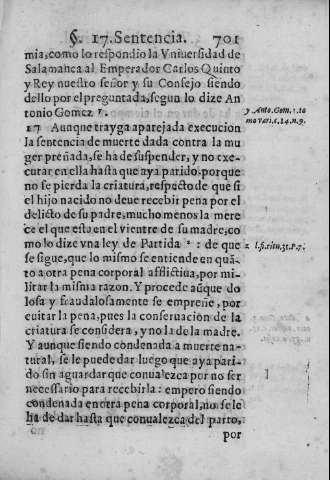 §. 17. Sentencia. 701
mia, como lo respondio la Vniuersidad de
Salamanca al Emperador Carlos Quinto
y Rey nuestro señor y su Consejo siendo
dello por el preguntada, segun lo dize An
tonio Gomez y.
y Anto. Gom. 1. to
mo vari. c. 14. n. 9.
17 Aunque trayga aparejada execucion
la sentencia de muerte dada contra la mu
ger preñada, se ha de suspender, y no exe-
cutar en ella hasta que aya parido: porque
no se pierda la criatura, respecto de que si
el hijo nacido no deue recebir pena por el
delicto de su padre, mucho menos la mere
ce el que esta en el vientre de su madre, co
mo lo dize vna ley de Partida z: de que
z l. fi. titu. 31. P. 7.
se sigue, que lo mismo se entiende en quã-
to a otra pena corporal afflictiua, por mi-
litar la misma razon. Y procede aũque do
losa y fraudalosamente se empreñe, por
euitar la pena, pues la conseruacion de la
criatura se considera, y no la de la madre.
Y aunque siendo condenada a muerte na-
tural, se le puede dar luego que aya pari-
do sin aguardar que conualezca por no ser
necessario para recebirla: empero siendo
condenada en otra pena corporal, no se le
ha de dar hasta que conualezca del parto,
por